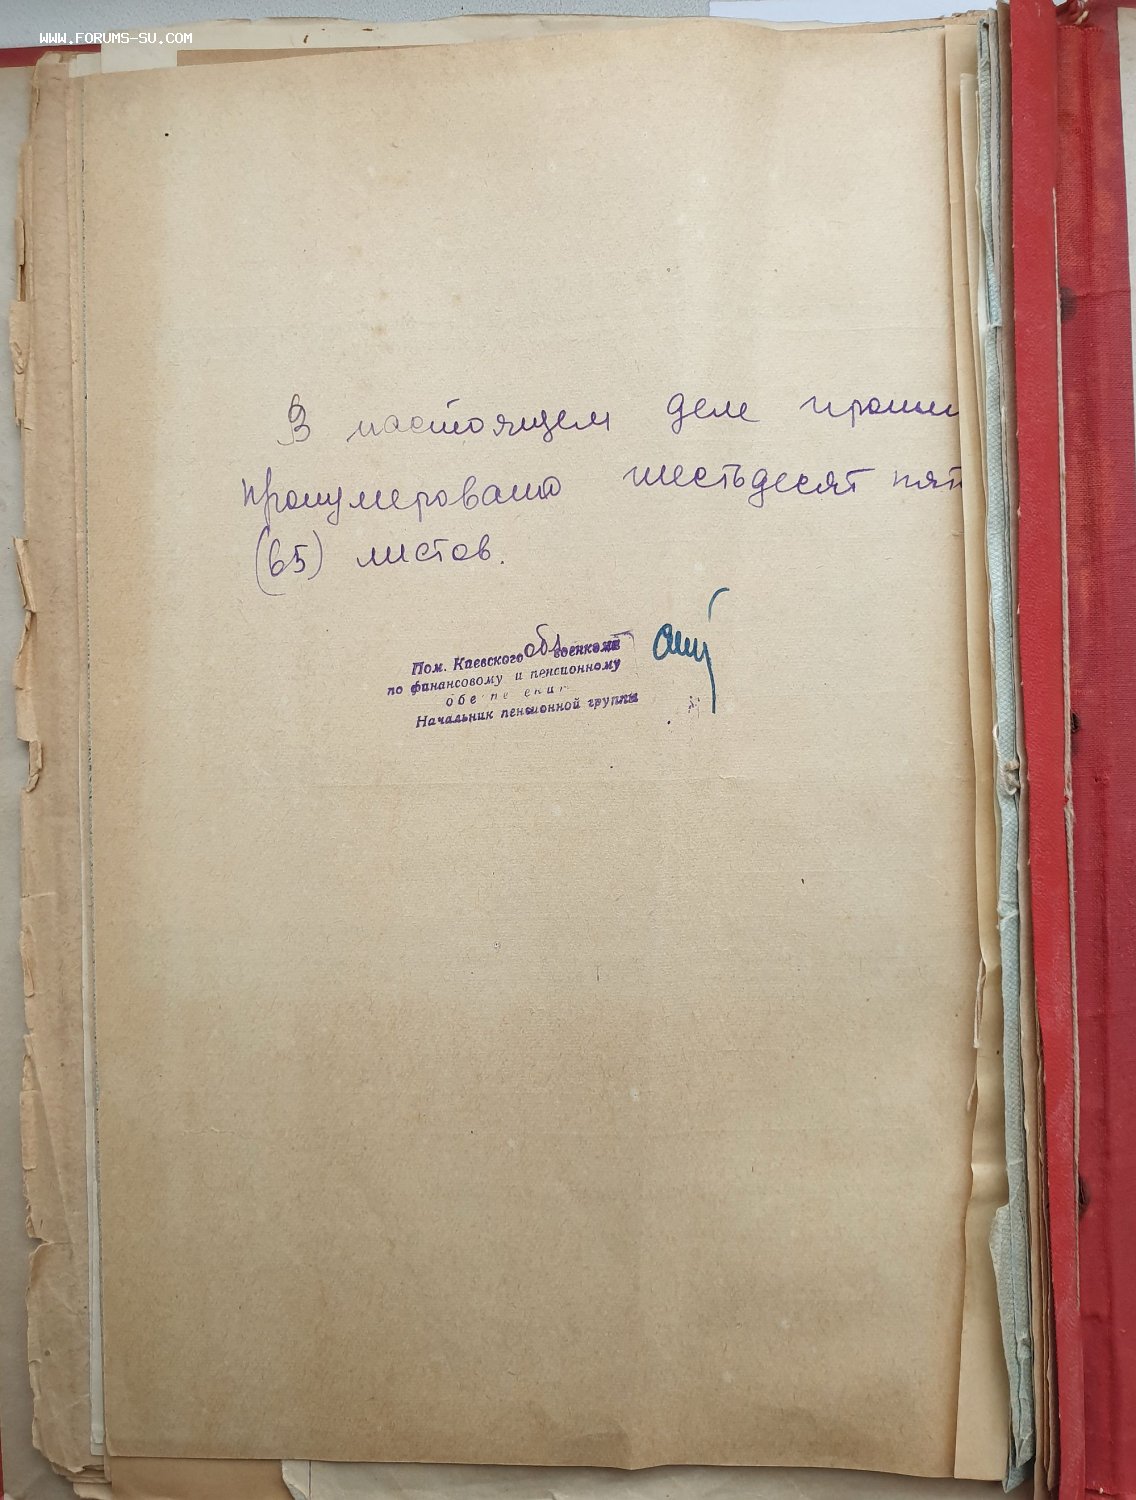 WWW.FORUMS-SU.COM
В настоящем деле прошн
пронумеровано шестьдесят пят
(65) листов.
Пом. Киевского обл военкома
по финансовому и пенсионному
обеспечению
Начальник пенсионной группы